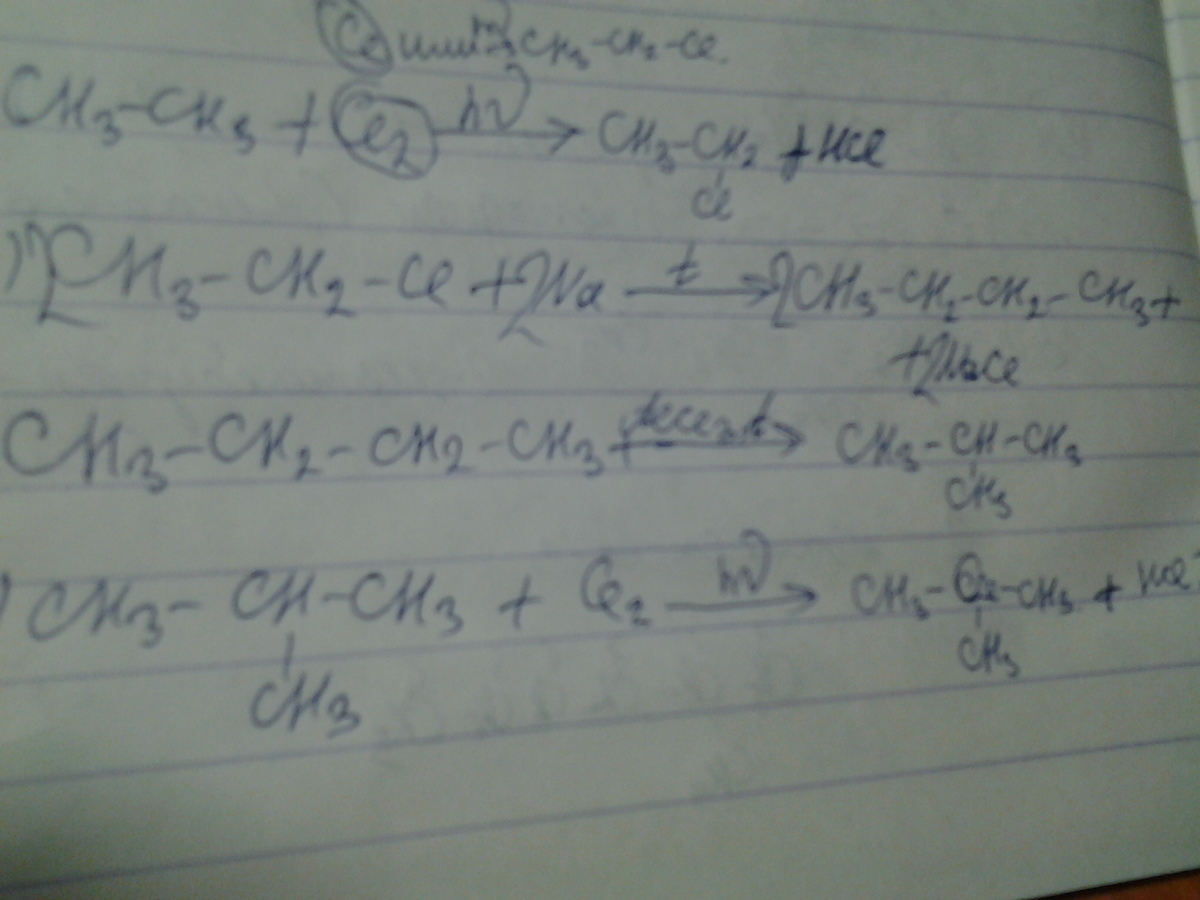 CH3-CH2-Cl.
CH3-CH3 + Cl2 hν → CH3-CH2 + HCl
Cl
2CH3-CH2-Cl + 2Na t → CH3-CH2-CH2-CH3 +
+ 2NaCl
CH3-CH2-CH2-CH3 AlCl3, t → CH3-CH-CH3
CH3
CH3-CH-CH3 + Cl2 hν → CH3- -CH3 + HCl
CH3 CH3